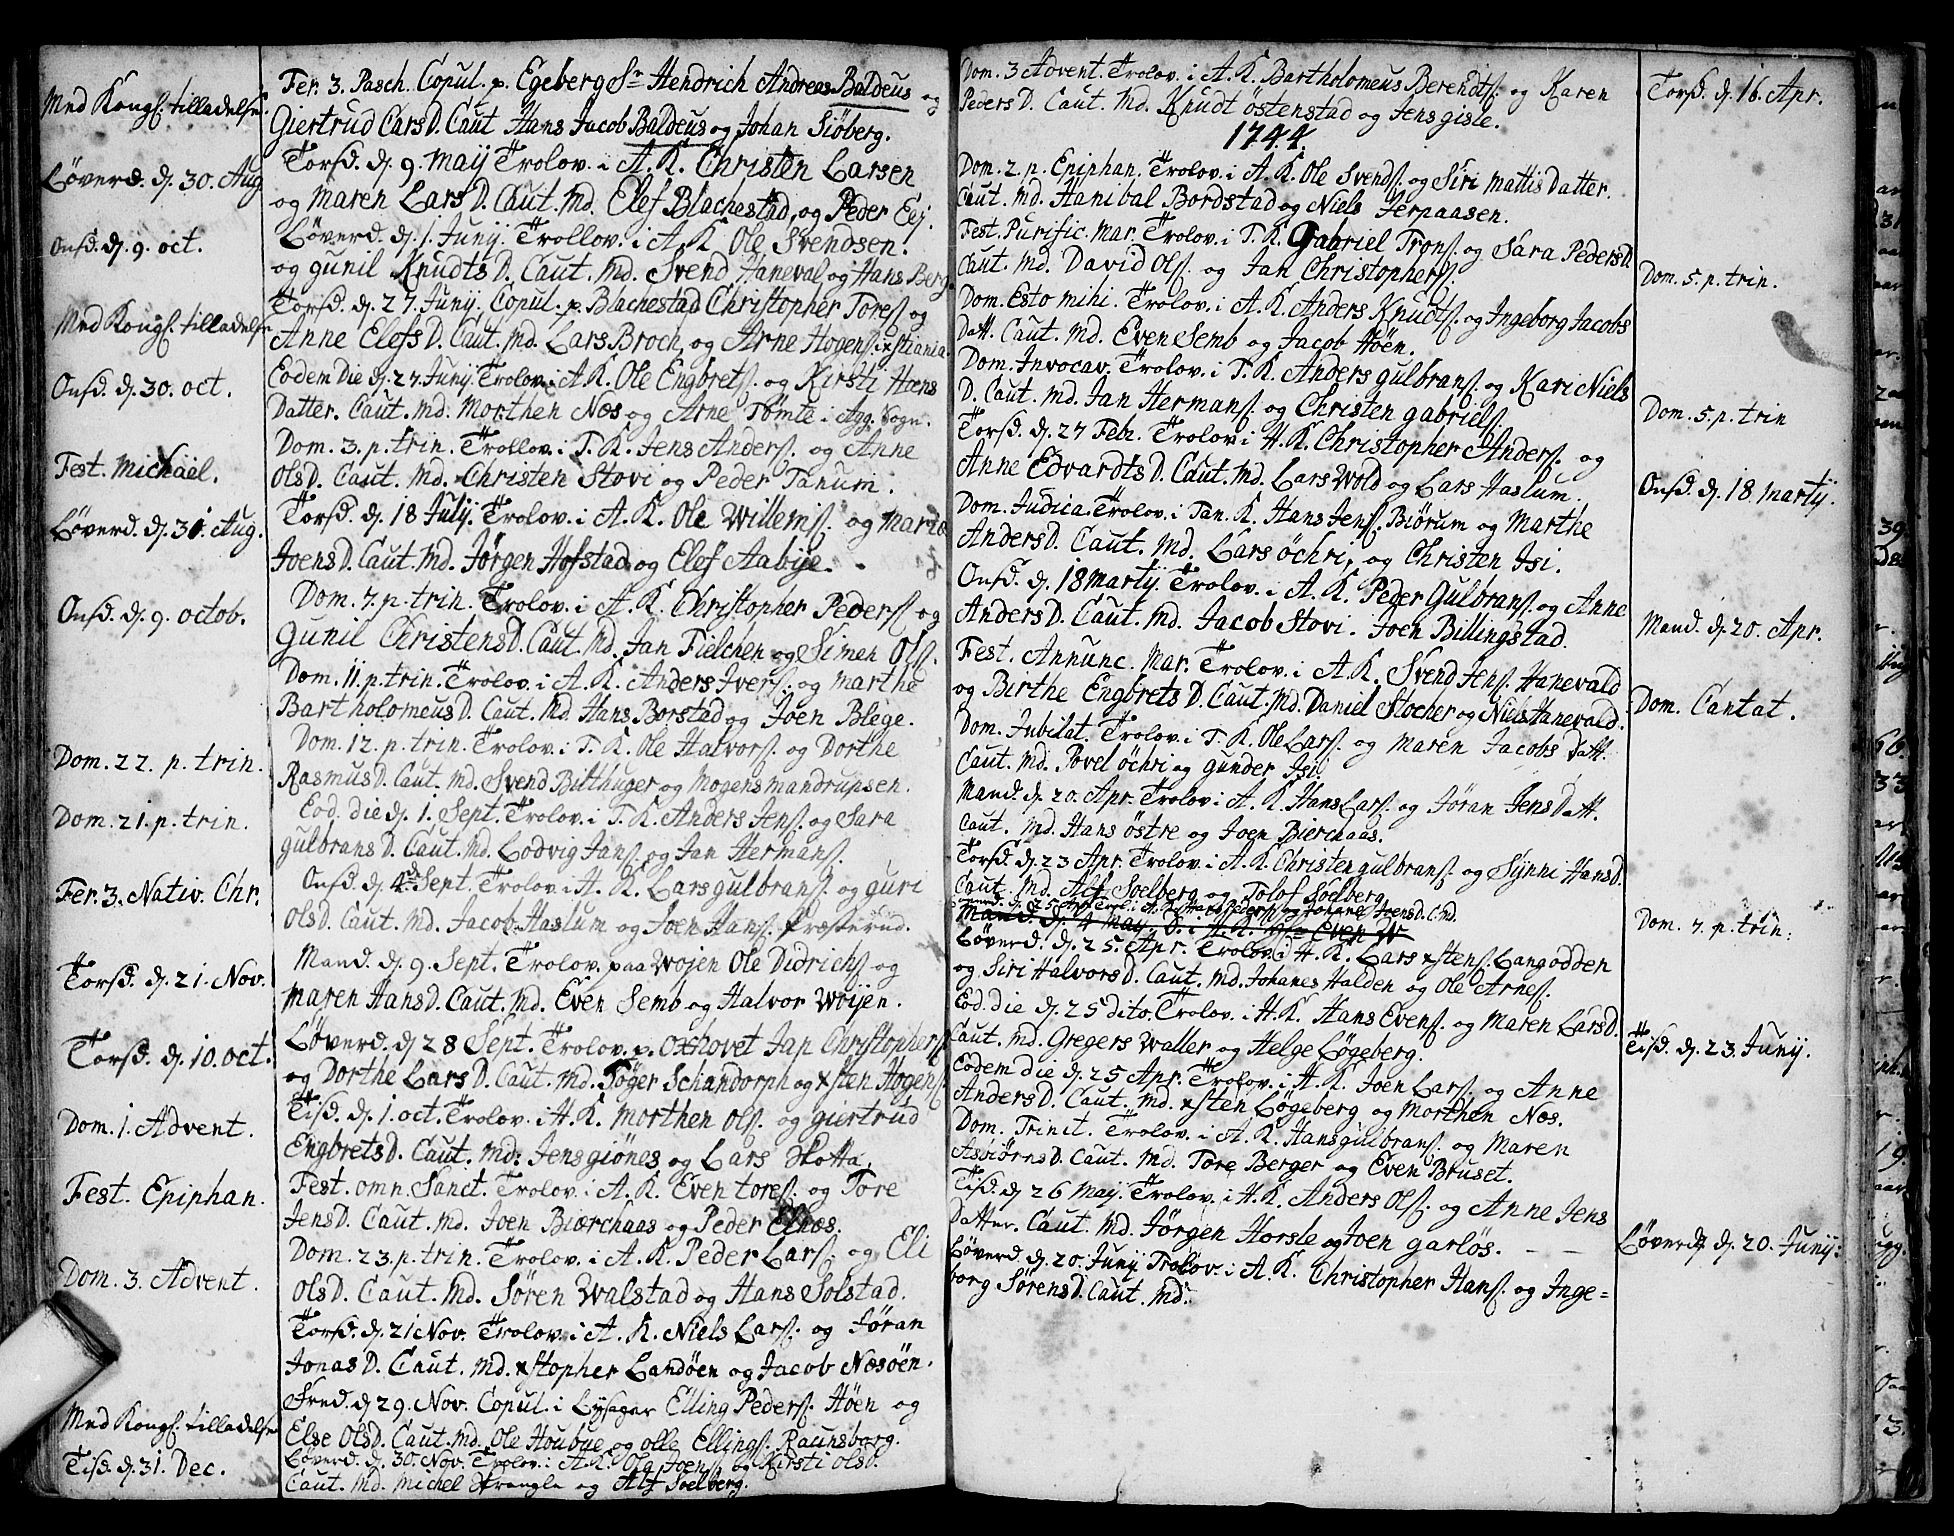 Med Kongs. tilladelse.
Løverd. d. 30. Aug.
Onsd. d. 9. oct.
Med Kongs. tilladelse
Onsd. d. 30. oct.
Fest. Michael.
Løverd. d. 31. Aug.
Onsd. d. 9. octob.
Dom. 22. p. trin.
Dom. 21. p. trin.
Fer. 3. Nativ. Chr.
Torsd. d. 21. Nov.
Torsd. d. 10. oct.
Dom. 1. Advent.
Fest. Epiphan.
Dom. 3. Advent.
Med Kongs. tilladelse
Tisd. d. 31. Dec.
Fer. 3. Pasch. Copul. p. Egeberg Sr. Hendrich Andreas Baldeus og
Giertrud Cars D. Caut Hans Jacob Baldeus og Johan Siöberg.
Torsd. d. 9. May Trolov. i A. K. Christen Larsen
og Maren Lars D. Caut. Md. Elef Blachestad, og Peder Eej.
Løverd. d. 1. Junij. Trollov. i A. K. Ole Svendsen
og gunil Knudts D. Caut. Md. Svend Haneval og Hans Berg.
Torsd. d. 27. Junij. Copul. p. Blachestad Christopher Tores. og
Anne Elefs D. Caut. Md. Lars Broch, og Arne Hogens. i xstiania.
Eodem Die d. 27. Junij. Trolov. i A. K. Ole Engbrets. og Kirsti Hoens
Datter. Caut. Md. Morthen Næs og Arne Tømte i Agg. Sogn.
Dom. 3. p. trin. Trollov. i T. K. Jens Anders. og Anne
Ols D. Caut. Md. Christen Stovi og Peder Tanum.
Torsd. d. 18 July. Trolov. i A. K. Ole Willems. og Marie
Joens D. Caut. Md. Jørgen Hofstad og Elef Aabye.
Dom. 7. p. trin. Trolov. i A. K. Christopher Peders. og
Gunil Christens D. Caut. Md. Jan Fielchen og Simen Ols.
Dom. 11. p. trin. Trolov. i A. K. Anders Ivers. og Marthe
Bartholomeus D. Caut. Md. Hans Borstad og Joen Blege.
Dom. 12. p. trin. Trolov. i T. K. Ole Halvors. og Dorthe
Rasmus D. Caut. Md. Svend Bilthuger og Mogens Mandrupsen.
Eod. die d. 1. Sept. Trolov. i T. K. Anders Jens. og Sara
gulbrans D. Caut. Md. Lodvig Jans. og Jan Hermans.
Onsd. d. 4. Sept. Trolov. i H. K. Lars gulbrans. og guri
Ols D. Caut. Md. Jacob Haslum og Joen Hans. Præsterud.
Mand. d. 9. Sept. Trolov. paa Wøjen Ole Didrichs. og
Maren Hans D. Caut. Md. Even Semb og Halvor Wøijen.
Løverd. d. 28 Sept. Trolov. p. Oxhovet Jap Christophers.
og Dorthe Lars D. Caut. Md. Tøger Schandorph og xsten Hogens.
Tisd. d. 1. oct. Trolov. i H. K. Morthen Ols. og giertrud
Engbrets D. Caut. Md. Jens giönes og Lars Skotta.
Fest. omn. Sanct. Trolov. i A. K. Even tores. og Tore
Jens D. Caut. Md. Joen Biærchaas og Peder Elnæs.
Dom. 23. p. trin. Trolov. i A. K. Peder Lars. og Eli
Ols D. Caut. Md. Søren Walstad og Hans Solstad.
Torsd. d. 21 Nov. Trolov. i A. K. Niels Lars. og Jøran
Jonas D. Caut. Md. xstopher Landøen og Jacob Næsøen.
Fred. d. 29. Nov. Copul. i Lysager Elling Peders. Høen og
Else Ols D. Caut. Md. Ole Houbue og olle Ellings. Raunsborg.
Løverd. d. 30. Nov. Trolov. i A. K. Ole Joens. og Kirsti Ols D.
Caut. Md. Michel Wrangle og Alf Soelberg.
Dom. 3 Advent. Trolov. i A. K. Bartholomeus Berendts. og Karen
Peders D. Caut. Md. Knudt östenstad og Jens gisle.
1744.
Dom. 2. p. Epiphan. Trolov. i A. K. Ole Svends. og Siri Mattis Datter.
Caut. Md. Hanibal Bordstad og Niels Jerpaasen.
Fest. Purific. Mar. Trolov. i T. K. Gabriel Trons. og Sara Peders D.
Caut. Md. David Ols. og Jan Christophers.
Dom. Esto mihi. Trolov. i A. K. Anders Knudts. og Ingeborg Jacobs
Datt. Caut. Md. Even Semb og Jacob Höen.
Dom. Invocav. Trolov. i T. K. Anders gulbrans. og Kari Niels
D. Caut. Md. Jan Hermans. og Christen gabriels.
Torsd. d. 27 Febr. Trolov. i H. K. Christopher Anders. og
Anne Edvardts D. Caut. Md. Lars Wold og Lars Haslum.
Dom. Judica. Trolov. i Tan. K. Hans Jens. Biørum og Marthe
Anders D. Caut. Md. Lars öchri, og Christen Isi.
Onsd. d. 18 Martij. Trolov. i A. K. Peder Gulbrans. og Anne
Anders D. Caut. Md. Jacob Stovi. Joen Billingstad.
Fest. Annunc. Mar. Trolov. i A. K. Svend Jens. Hanevald
og Birthe Engbrets D. Caut. Md. Daniel Stocher og Niels Hanevald.
Dom. Jubilat. Trolov. i T. K. Ole Lars. og Maren Jacobs Datt.
Caut. Md. Povel öchri og gunder Isi.
Mand. d. 20. Apr. Trolov. i A. K. Hans Lars. og Jøran Jens Datt.
Caut. Md. Hans östre og Joen Bierchaas.
Torsd. d. 23 Apr. Trolov. i A. K. Christen gulbrans. og Synni Hans D.
Caut. Md. Alf Soelberg og Tolof Soelberg.
Mand. d. 4 May.
Løverd. d. 25. Apr. Trolov. i H. K. Lars xstens. Langodden
og Siri Halvors D. Caut. Md. Johanes Halden og Ole Arnes.
Eod. die d. 25 dito. Trolov. i H. K. Hans Evens. og Maren Lars D.
Caut. Md. Gregers Waller og Helge Løgeberg.
Eodem die d. 25 Apr. Trolov. i H. K. Joen Lars. og Anne
Anders D. Caut. Md. xsten Løgeberg og Morthen Næs.
Dom. Trinit. Trolov. i A. K. Hans gulbrans. og Maren
Asbiørns D. Caut. Md. Tore Berger og Even Bruset.
Tisd. d. 26 May. Trolov. i H. K. Anders Ols. og Anne Jens
Datter. Caut. Md. Jørgen Horsle og Joen garløs.
Løverd. d. 20. Junij Trolov. i A. K. Christopher Hans. og Inge=
borg Sörens D. Caut. Md.
Torsd. d. 16. Apr.
Dom. 5. p. trin.
Dom. 5. p. trin
Onsd. d. 18 Martij.
Mand. d. 20. Apr.
Dom. Cantat.
Dom. 7. p. trin.
Tisd. d. 23. Junij.
Løverd. d. 20. Junij.